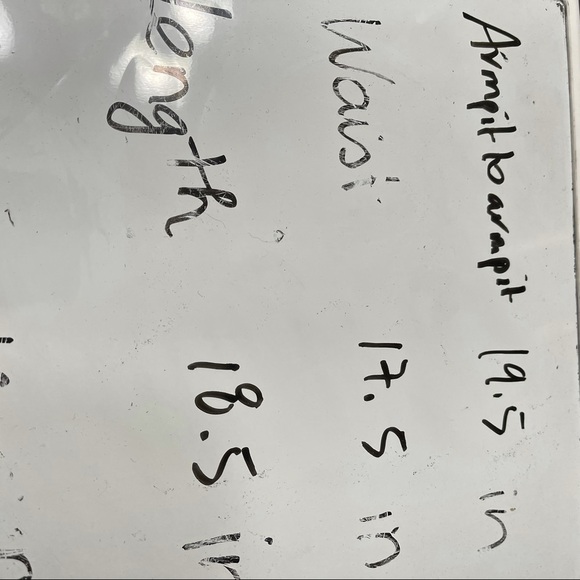 Armpit to armpit 19.5 in
Waist 17.5 in
length 18.5 in